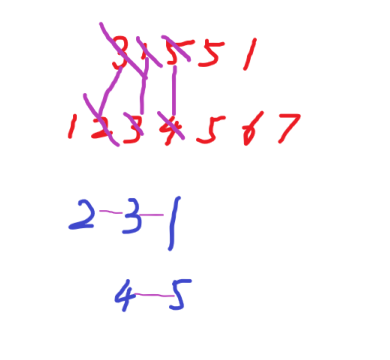 3 1 5 5 1
1 2 3 4 5 6 7
2-3-1
4-5